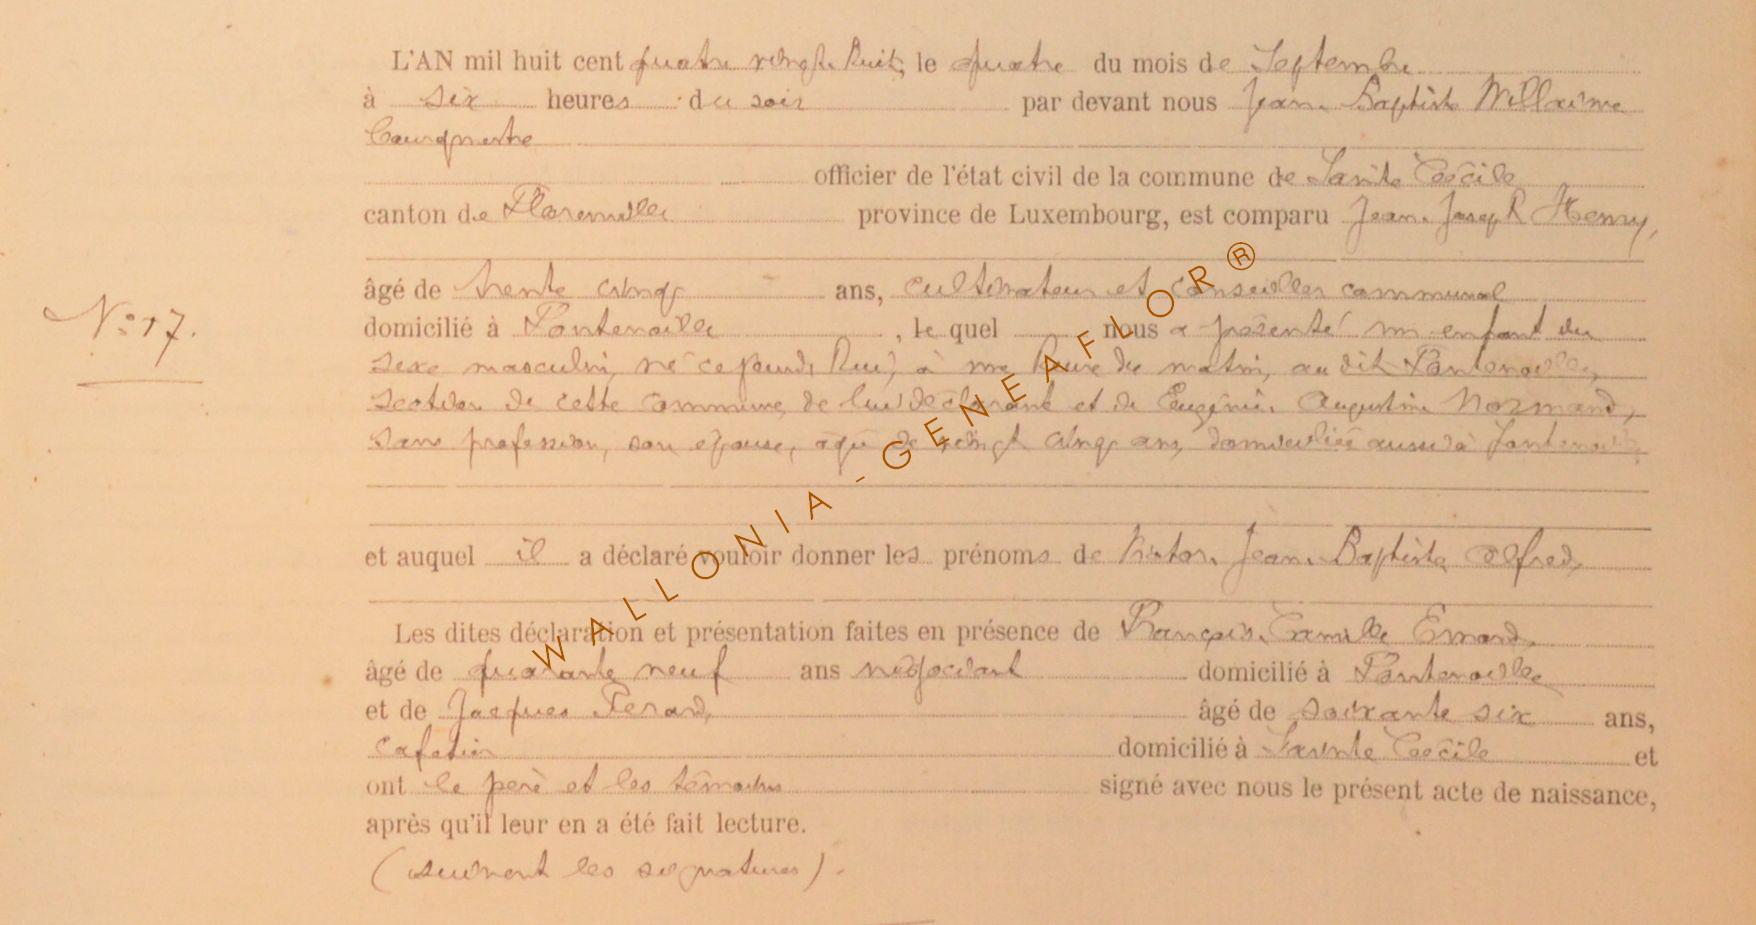 L'AN mil huit cent quatre vingt huit, le quatre du mois de Septembre
à six heures du soir par devant nous Jean Baptiste Willaime
bourgmestre
officier de l'état civil de la commune de Sainte Cécile
canton de Florenville province de Luxembourg, est comparu Jean Joseph Henry,
âgé de trente cinq ans, cultivateur et conseiller communal
N° 17.
domicilié à Fontenoille, le quel nous a présenté un enfant du
sexe masculin, né ce jourd'hui, à une heure du matin, au dit Fontenoille,
section de cette commune, de lui déclarant et de Eugénie Augustine Normand,
sans profession, son épouse, âgée de vingt cinq ans, domiciliée aussi à Fontenoille,
et auquel il a déclaré vouloir donner les prénoms de Victor Jean Baptiste Alfred,
Les dites déclaration et présentation faites en présence de François Camille Emond,
âgé de quarante neuf ans négociant domicilié à Fontenoille
et de Jacques Perard, âgé de soixante six ans,
cafetier domicilié à Sainte Cécile et
ont le père et les témoins signé avec nous le présent acte de naissance,
après qu'il leur en a été fait lecture.
(suivent les signatures).
WALLONIA-GENEAFLOR®